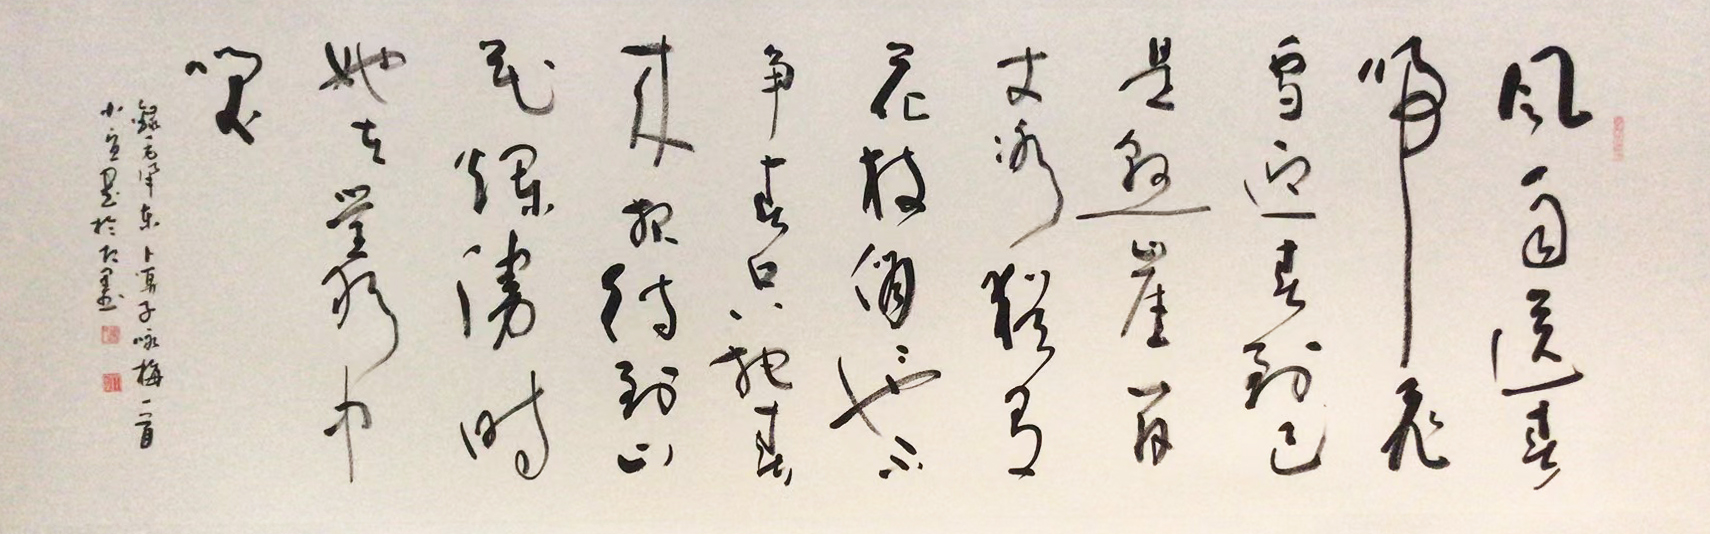 风雨送春
归飞
雪迎春到已
是悬崖百
丈冰犹有
花枝俏俏也不
争春只把春
来报待到山
花烂漫时
她在丛中
笑
录毛泽东卜算子咏梅一首